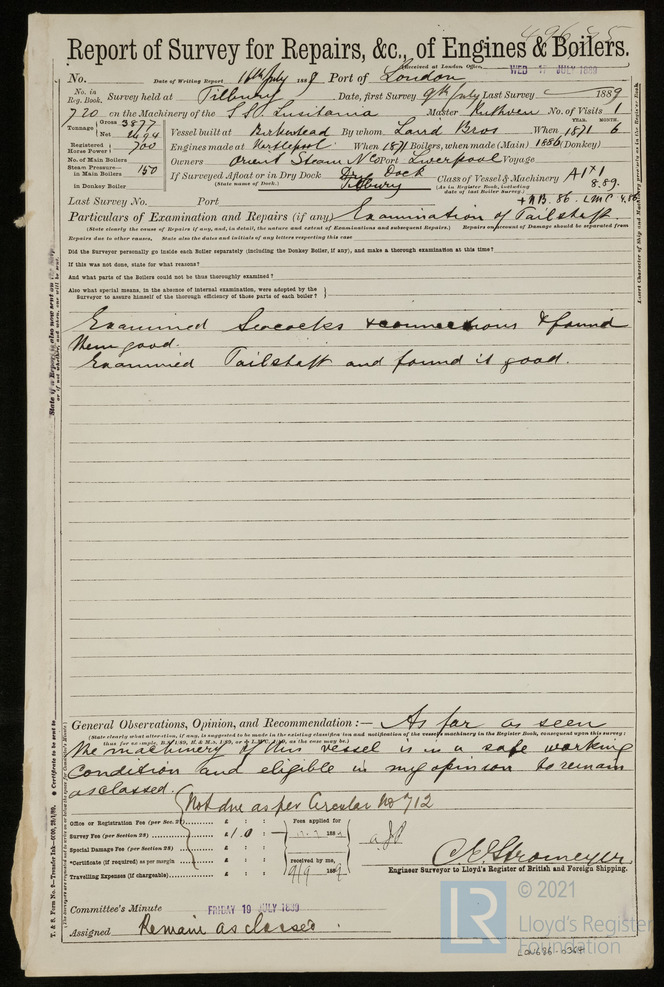 49685
Report of Survey for Repairs, &c., of Engines & Boilers.
Received at London Office WED 17 JULY 1889
No. Date of Writing Report 16th July 1889 Port of London
No. in Reg. Book. Survey held at Tilbury Date, first Survey 9th July Last Survey 1889
720 on the Machinery of the S.S. Lusitania Master Ruthven No. of Visits 1
Tonnage Gross 3877 Net 2494 Vessel built at Birkenhead By whom Laird Bros When 1871 YEAR. MONTH. 6
Registered Horse Power 700 Engines made at Hartlepool When 1871 Boilers, when made (Main) 1886 (Donkey)
No. of Main Boilers Owners Orient Steam N Co Port Liverpool Voyage
Steam Pressure— in Main Boilers 150 If Surveyed Afloat or in Dry Dock Dry Dock Tilbury Class of Vessel & Machinery A1
(State name of Dock.) (As in Register Book, including date of last Boiler Survey.) 8.89.
in Donkey Boiler
Last Survey No. Port + NB. 86. LMC 4.86
Particulars of Examination and Repairs (if any) Examination of Tailshaft.
(State clearly the cause of Repairs if any, and, in detail, the nature and extent of Examinations and subsequent Repairs.) Repairs on account of Damage should be separated from
Repairs due to other causes, State also the dates and initials of any letters respecting this case
Did the Surveyor personally go inside each Boiler separately (including the Donkey Boiler, if any), and make a thorough examination at this time?
If this was not done, state for what reasons?
And what parts of the Boilers could not be thus thoroughly examined?
Also what special means, in the absence of internal examination, were adopted by the
Surveyor to assure himself of the thorough efficiency of those parts of each boiler?
Examined Seacocks & connections & found
them good.
Examined Tailshaft and found it good.
General Observations, Opinion, and Recommendation :— As far as seen
(State clearly what alteration, if any, is suggested to be made in the existing classification and notification of the vessel's machinery in the Register Book, consequent upon this survey:
the machinery of this vessel is in a safe working
condition and eligible in my opinion to remain
as classed.
Not due as per Circular No 712
Office or Registration Fee (per Sec. 28) £ : : Fees applied for
Survey Fee (per Section 28) £ 1.0 :
Special Damage Fee (per Section 28) £ : :
*Certificate (if required) as per margin £ : : received by me,
Travelling Expenses (if chargeable) £ : : 9/9 1889
C.E. Stromeyer
Engineer Surveyor to Lloyd's Register of British and Foreign Shipping.
Committee's Minute FRIDAY 19 JULY 1889
Assigned Remain as classed.
© 2021
LR Lloyd's Register
Foundation
LON686-0364